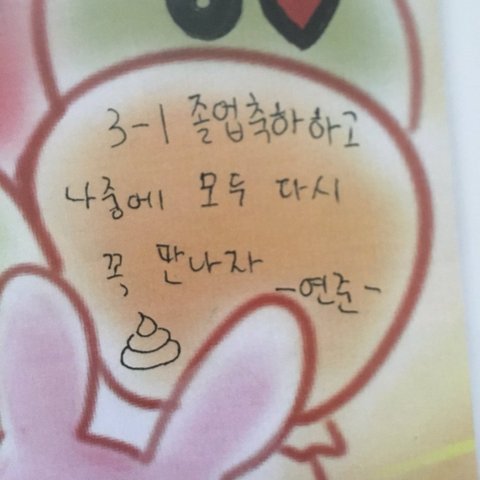 3-1 졸업축하하고
나중에 모두 다시
꼭 만나자
-연준-